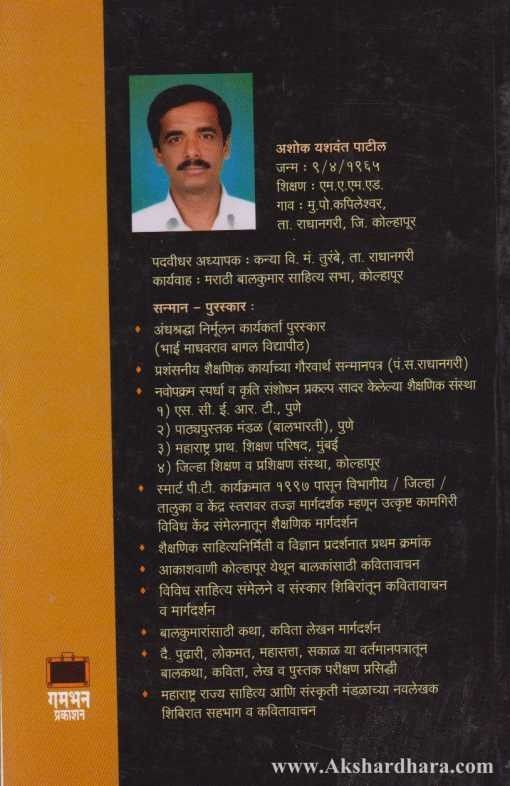 अशोक यशवंत पाटील
जन्म : ९/४/१९६५
शिक्षण : एम.ए.एम.एड.
गाव : मु.पो.कपिलेश्वर,
ता. राधानगरी, जि. कोल्हापूर
पदवीधर अध्यापक : कन्या वि. मं. तुरंबे, ता. राधानगरी
कार्यवाह : मराठी बालकुमार साहित्य सभा, कोल्हापूर
सन्मान – पुरस्कार :
♦ अंधश्रद्धा निर्मूलन कार्यकर्ता पुरस्कार
(भाई माधवराव बागल विद्यापीठ)
♦ प्रशंसनीय शैक्षणिक कार्याच्या गौरवार्थ सन्मानपत्र (पं.स.राधानगरी)
♦ नवोपक्रम स्पर्धा व कृति संशोधन प्रकल्प सादर केलेल्या शैक्षणिक संस्था
१) एस. सी. ई. आर. टी., पुणे
२) पाठ्यपुस्तक मंडळ (बालभारती), पुणे
३) महाराष्ट्र प्राथ. शिक्षण परिषद, मुंबई
४) जिल्हा शिक्षण व प्रशिक्षण संस्था, कोल्हापूर
♦ स्मार्ट पी.टी. कार्यक्रमात १९९७ पासून विभागीय / जिल्हा /
तालुका व केंद्र स्तरावर तज्ज्ञ मार्गदर्शक म्हणून उत्कृष्ट कामगिरी
विविध केंद्र संमेलनातून शैक्षणिक मार्गदर्शन
♦ शैक्षणिक साहित्यनिर्मिती व विज्ञान प्रदर्शनात प्रथम क्रमांक
♦ आकाशवाणी कोल्हापूर येथून बालकांसाठी कवितावाचन
♦ विविध साहित्य संमेलने व संस्कार शिबिरांतून कवितावाचन
व मार्गदर्शन
♦ बालकुमारांसाठी कथा, कविता लेखन मार्गदर्शन
♦ दै. पुढारी, लोकमत, महासत्ता, सकाळ या वर्तमानपत्रातून
बालकथा, कविता, लेख व पुस्तक परीक्षण प्रसिद्धी
♦ महाराष्ट्र राज्य साहित्य आणि संस्कृती मंडळाच्या नवलेखक
शिबिरात सहभाग व कवितावाचन
गमभन
प्रकाशन
www.Akshardhara.com